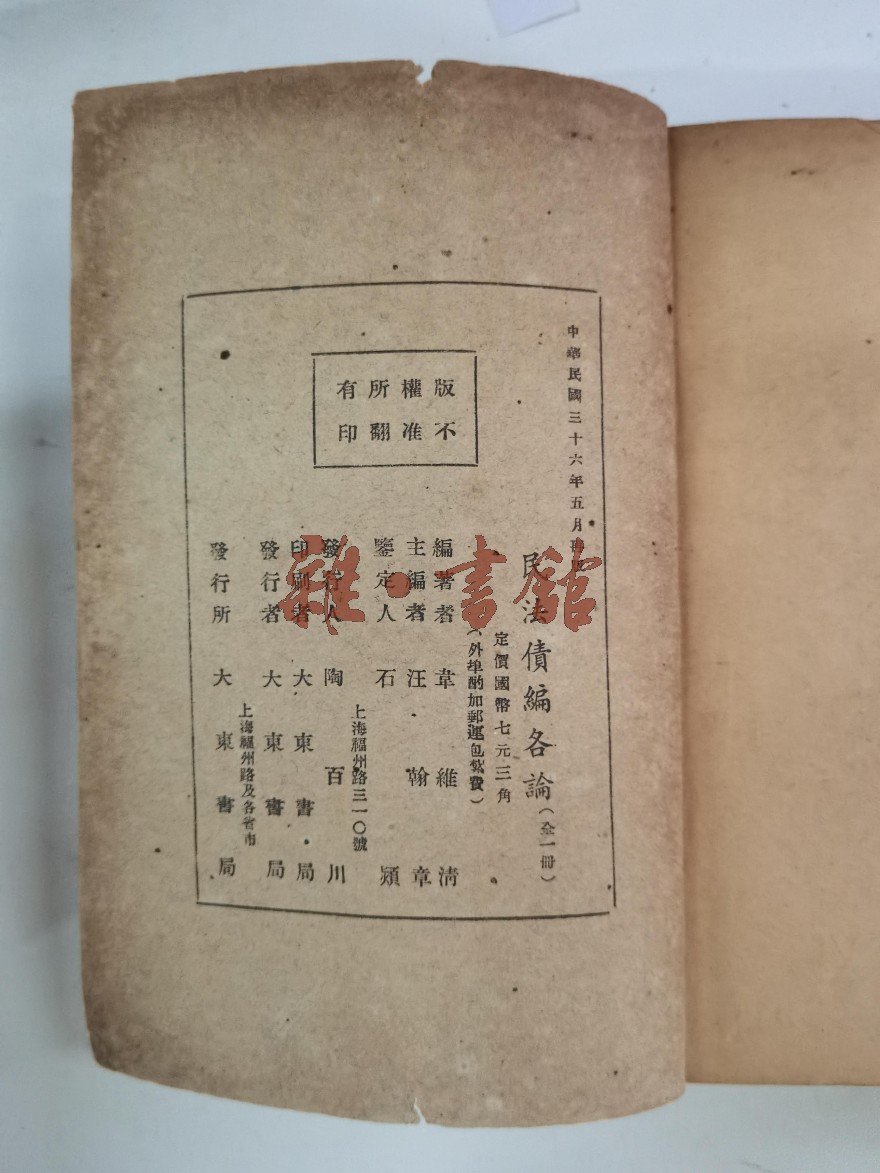 中華民國三十六年五月再版
民法債編各論(全一冊)
定價國幣七元三角
(外埠酌加郵運包紮費)
版權所有
不准翻印
編著者 韋維清
主編者 汪翰章
鑒定人 石熲
發行人 陶百川
上海福州路三一〇號
印刷者 大東書局
發行者 大東書局
上海福州路及各省市
發行所 大東書局
雜·書館